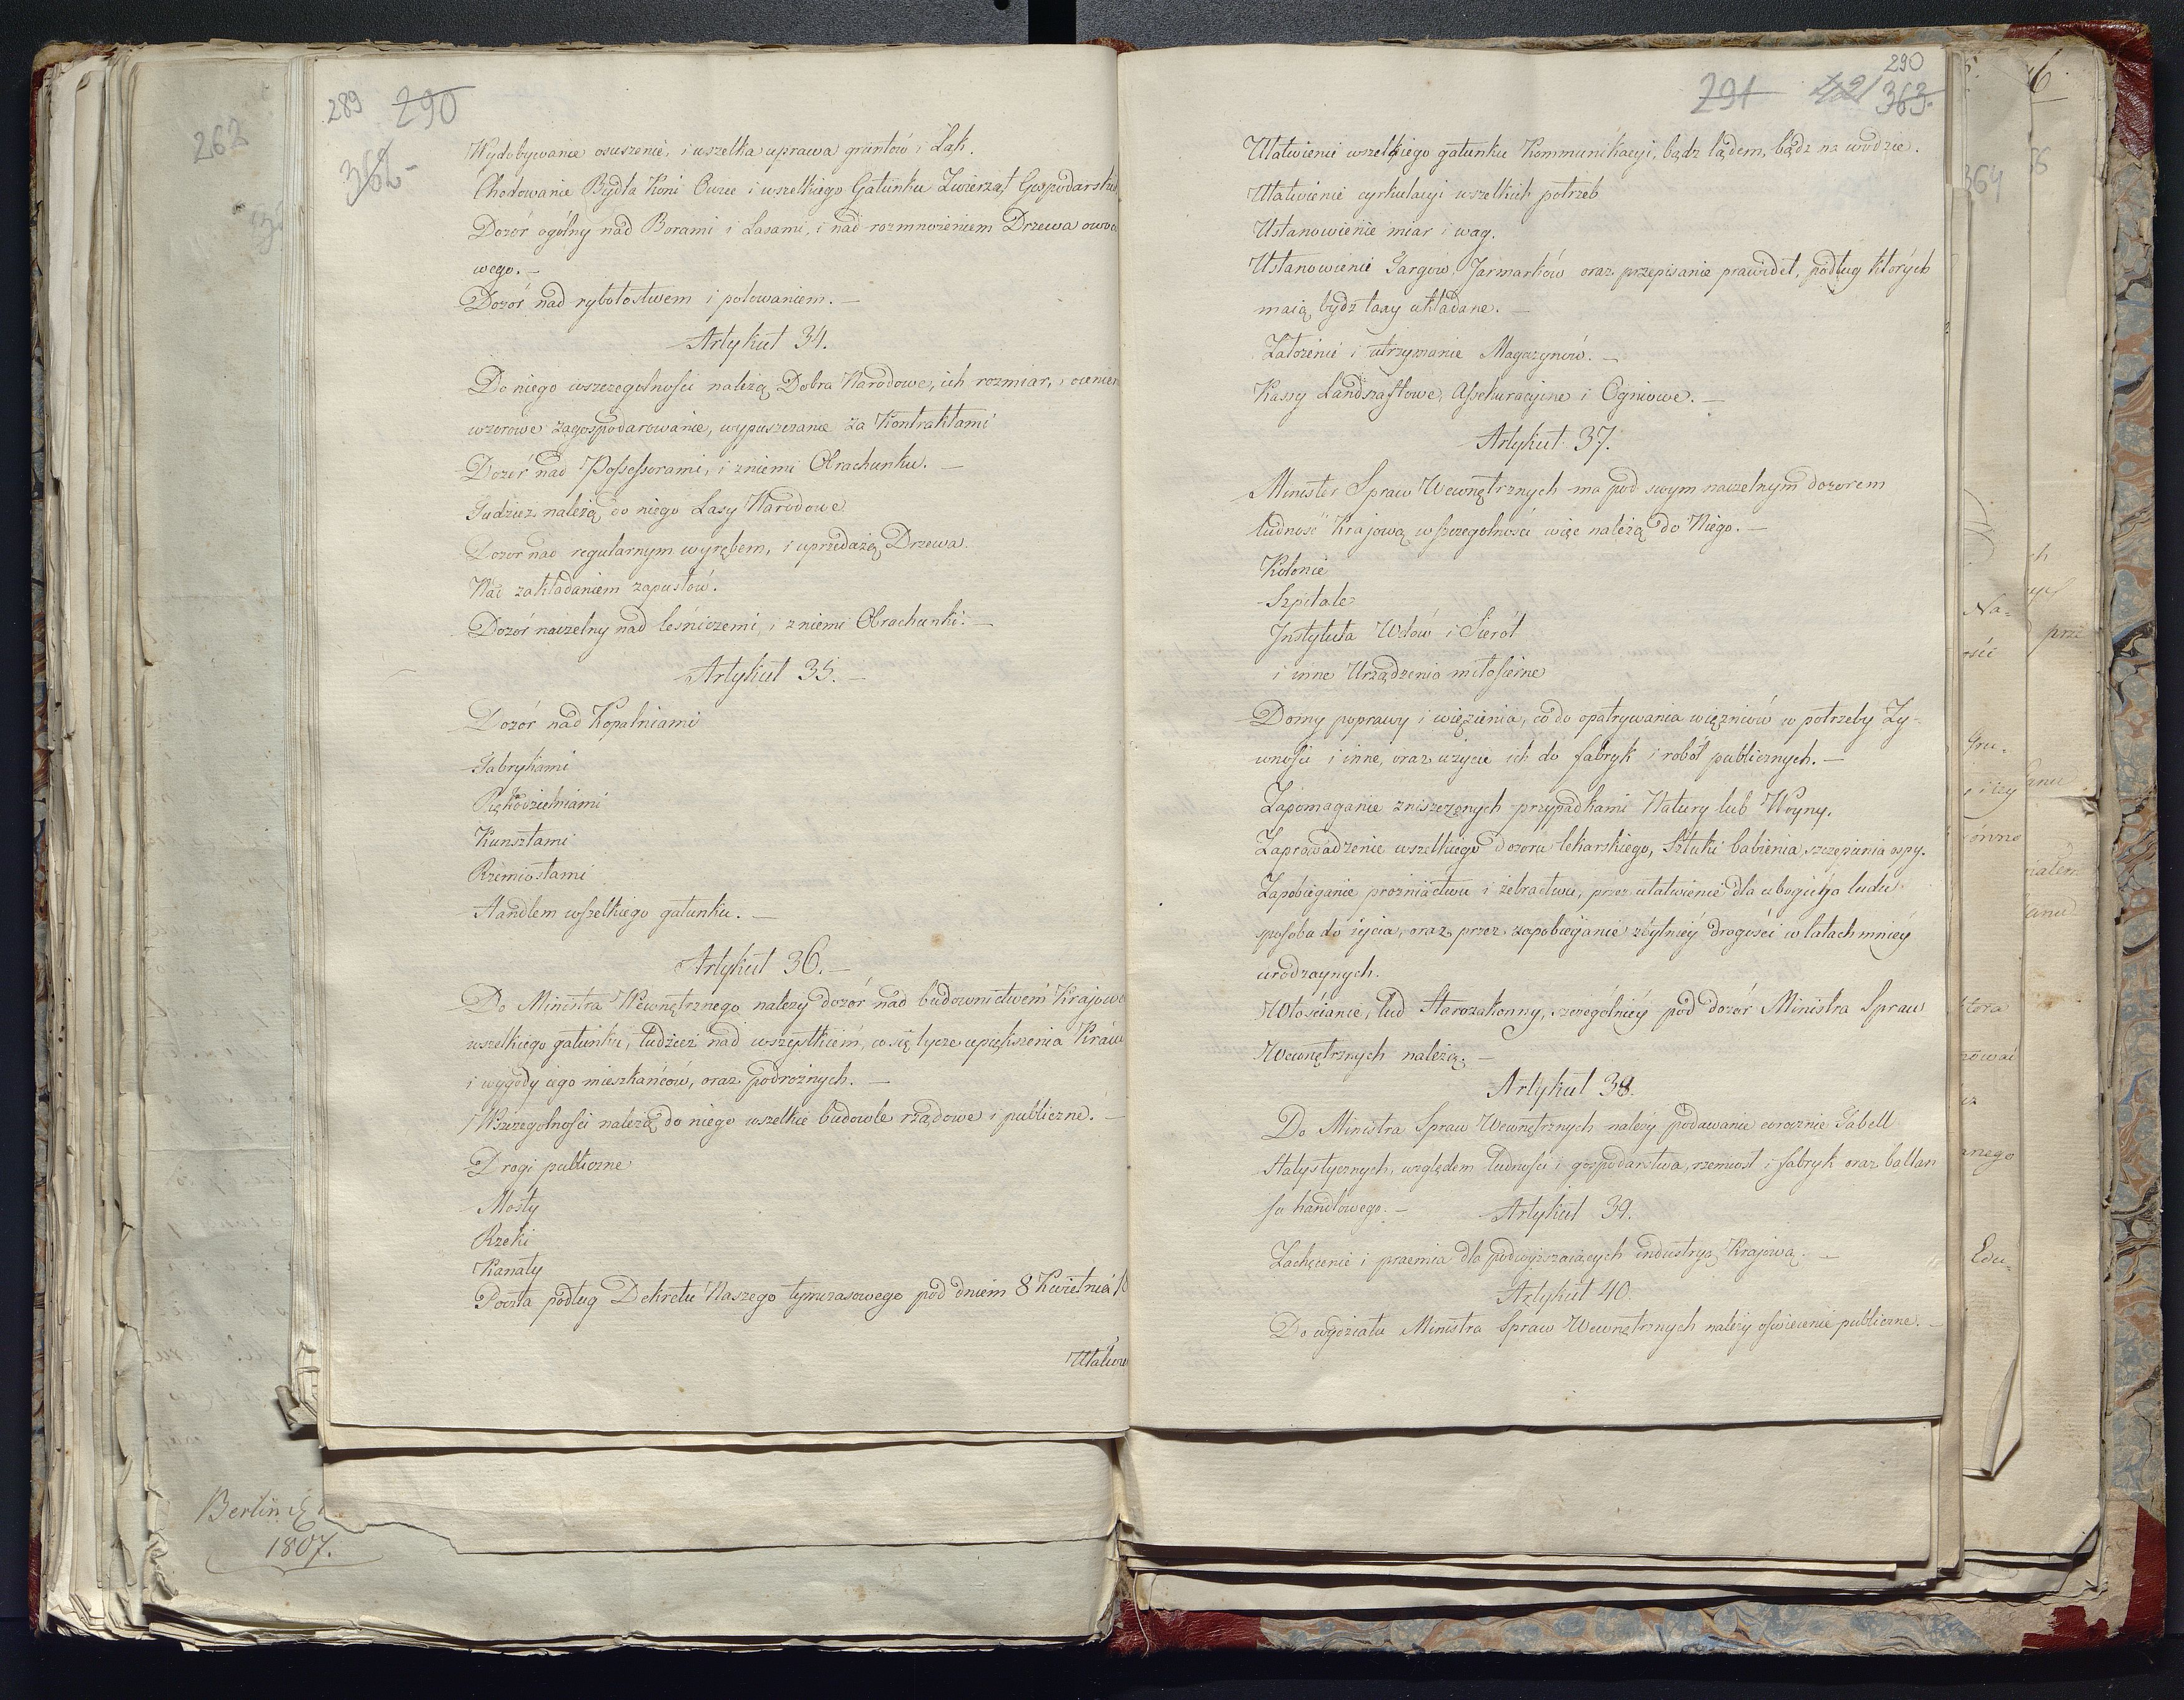 289 290
362
Wydobywanie osuszenie, i wszelka uprawa gruntów i Łąk.
Chodowanie Bydła Koni Owiec i wszelkiego Gatunku Zwierząt Gospodarski
Dozór ogólny nad Borami i Lasami, i nad rozmnożeniem Drzewa owoc
wego. –
Dozór nad rybołostwem i polowaniem. –
Artykuł 34.
Do niego wszczegolności należą Dobra Narodowe, ich rozmiar, i ocenien
wzorowe zagospodarowanie, wypuszczanie za Kontraktami
Dozór nad Possessorami, i zniemi Obrachunku. –
Tudzież należą do niego Lasy Narodowe
Dozór nad regularnym wyrębem, i uprzedażą Drzewa.
Nad zakładaniem zapustów.
Dozór naczelny nad leśniczemi, i zniemi Obrachunki. –
Artykuł 35. –
Dozór nad Kopalniami
Fabrykami
Rękodzielniami
Kunsztami
Rzemiosłami
Handlem wszelkiego gatunku. –
Artykuł 36. –
Do Ministra Wewnętrznego należy dozór nad budownictwem Krajowe
wszelkiego gatunku, tudzież nad wszystkiem, co się tycze upiększenia Kraiu
i wygody iego mieszkańców, oraz podrożnych. –
Wszczegolności należą do niego wszelkie budowle rządowe i publiczne. –
Drogi publiczne
Mosty
Rzeki
Kanały
Poczta podług Dekretu Naszego tymczasowego pod dniem 8 Kwietnia 18
Ułatwi
290
291 421 363.
Ułatwienie wszelkiego gatunku Kommunikacyi, bądz lądem, bądz na wodzie.
Ułatwienie cyrkulacyi wszelkich potrzeb
Ustanowienie miar i wag.
Ustanowienie Targów, Jarmarków oraz przepisanie prawideł, podług których
maią bydz taxy układane. –
Założenie i utrzymanie Magazynów. –
Kassy Landszaftowe, Assekuracyine i Ogniowe. –
Artykuł 37.
Minister Spraw Wewnętrznych ma pod swym naczelnym dozorem
ludność Krajową wszczegolności więc należą do Niego. –
Kolonie
Szpitale
Instytuta Wdów i Sierót
i inne Urządzenia miłosierne
Domy poprawy i więzienia, co do opatrywania więzniów w potrzeby Ży-
wności i inne, oraz uzycie ich do fabryk i robót publicznych. –
Zapomaganie zniszczonych przypadkami Natury lub Woyny.
Zaprowadzenie wszelkiego dozoru lekarskiego, Sztuki babienia, szczepienia ospy.
Zapobieganie prozniactwu i żebractwu, przez ułatwienie dla ubogiego ludu
sposobu do życia, oraz przez zapobieganie zbytniey drogości w latach mniey
urodzaynych.
Włościanie, lud Starozakonny, szczególniey pod dozór Ministra Spraw
Wewnętrznych należą. –
Artykuł 38.
Do Ministra Spraw Wewnętrznych należy podawanie corocznie Tabell
Statystycznych, względem ludności i gospodarstwa, rzemiosł i fabryk oraz ballan
su handlowego. –
Artykuł 39.
Zachęcenie i praemia dla podwyższaiących industryą Krajową. –
Artykuł 40.
Do wydziału Ministra Spraw Wewnętrznych należy oświecenie publiczne. –
262
Berlin
1807.
364
Na-
Gru-
nego
Edu-
6
prze